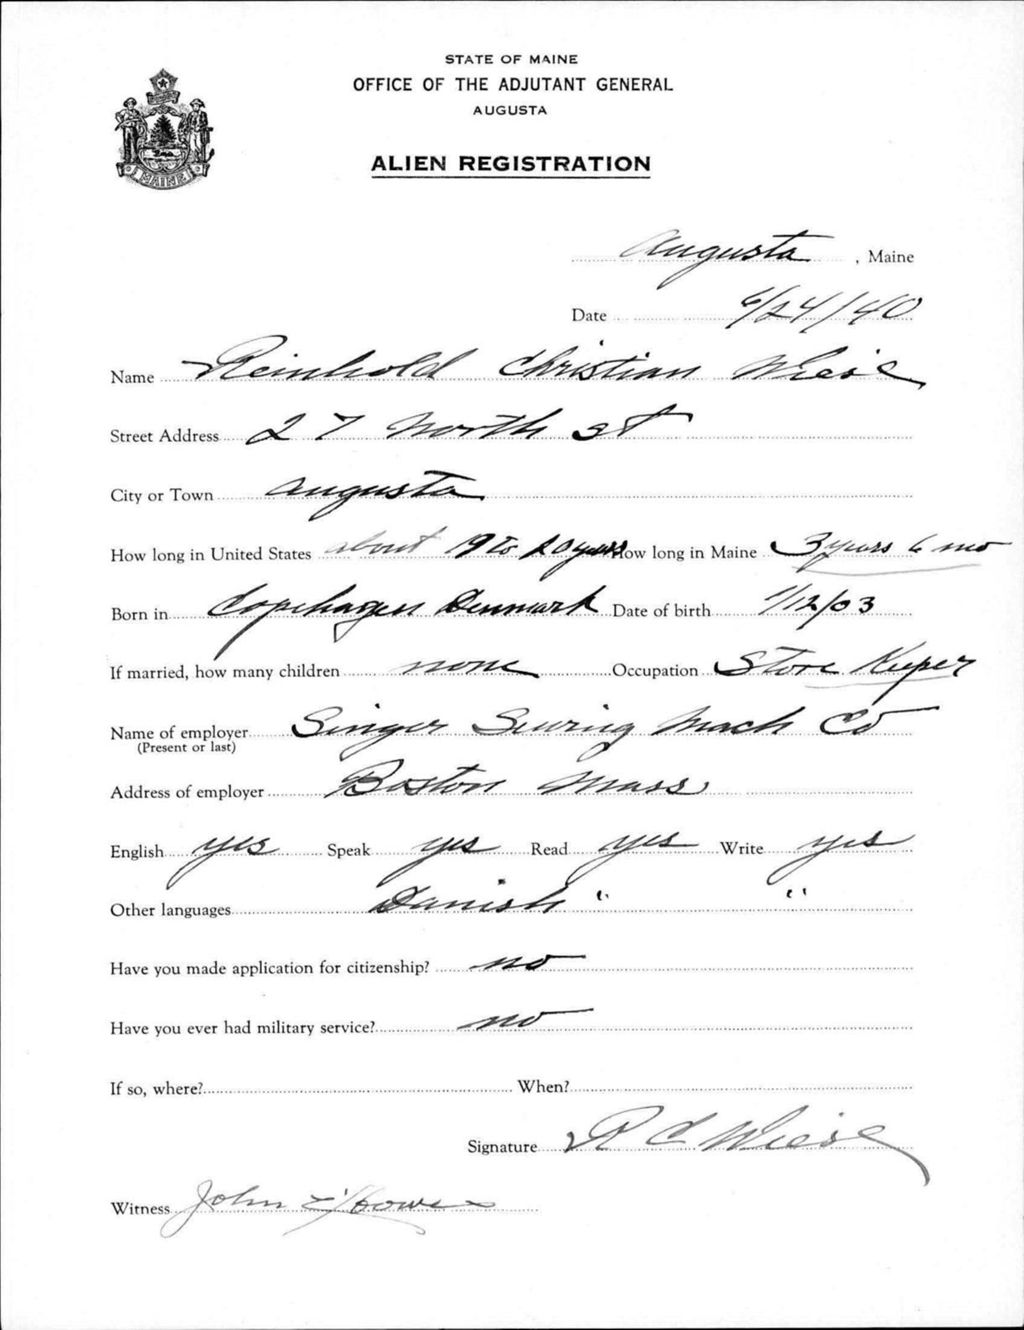 STATE OF MAINE
OFFICE OF THE ADJUTANT GENERAL
AUGUSTA
ALIEN REGISTRATION
MAINE
Augusta, Maine
Date 6/24/40
Name Reinhold Christian Wiese
Street Address 27 North st
City or Town Augusta
How long in United States about 19 to 20 years How long in Maine 3 years 6 mo
Born in Copenhagen Denmark Date of birth 1/12/03
If married, how many children none Occupation Store Keeper
Name of employer Singer Sewing Mach Co
(Present or last)
Address of employer Boston Mass
English yes Speak yes Read yes Write yes
Other languages Danish " "
Have you made application for citizenship? no
Have you ever had military service? no
If so, where? When?
Signature R C Wiese
Witness John